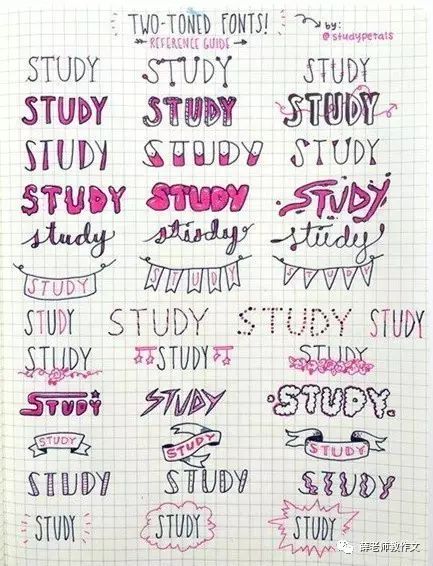 TWO-TONED FONTS! by:
REFERENCE GUIDE @studypetals
STUDY STUDY STUDY
STUDY STUDY STUDY
STUDY STUDY STUDY
STUDY STUDY STUDY
study study study
STUDY STUDY STUDY
STUDY STUDY STUDY STUDY
STUDY STUDY STUDY
STUDY STUDY STUDY
STUDY STUDY STUDY
STUDY STUDY STUDY
STUDY STUDY STUDY
薛老师教作文